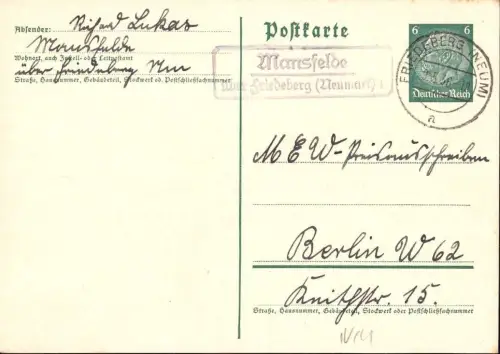 Absender: Richard Lukas
Mansfelde
Wohnort, auch Zustell- oder Leitpostamt
über Friedeberg Nm
Straße, Hausnummer, Gebäudeteil, Stockwerk od. Postschließfachnummer
Postkarte
Mansfelde
über Friedeberg (Neumark)
6 6
Deutsches Reich
FRIEDEBERG (NEUM)
a
MEW-Preisausschreiben
Berlin W 62
Keithstr. 15.
Straße, Hausnummer, Gebäudeteil, Stockwerk oder Postschließfachnummer